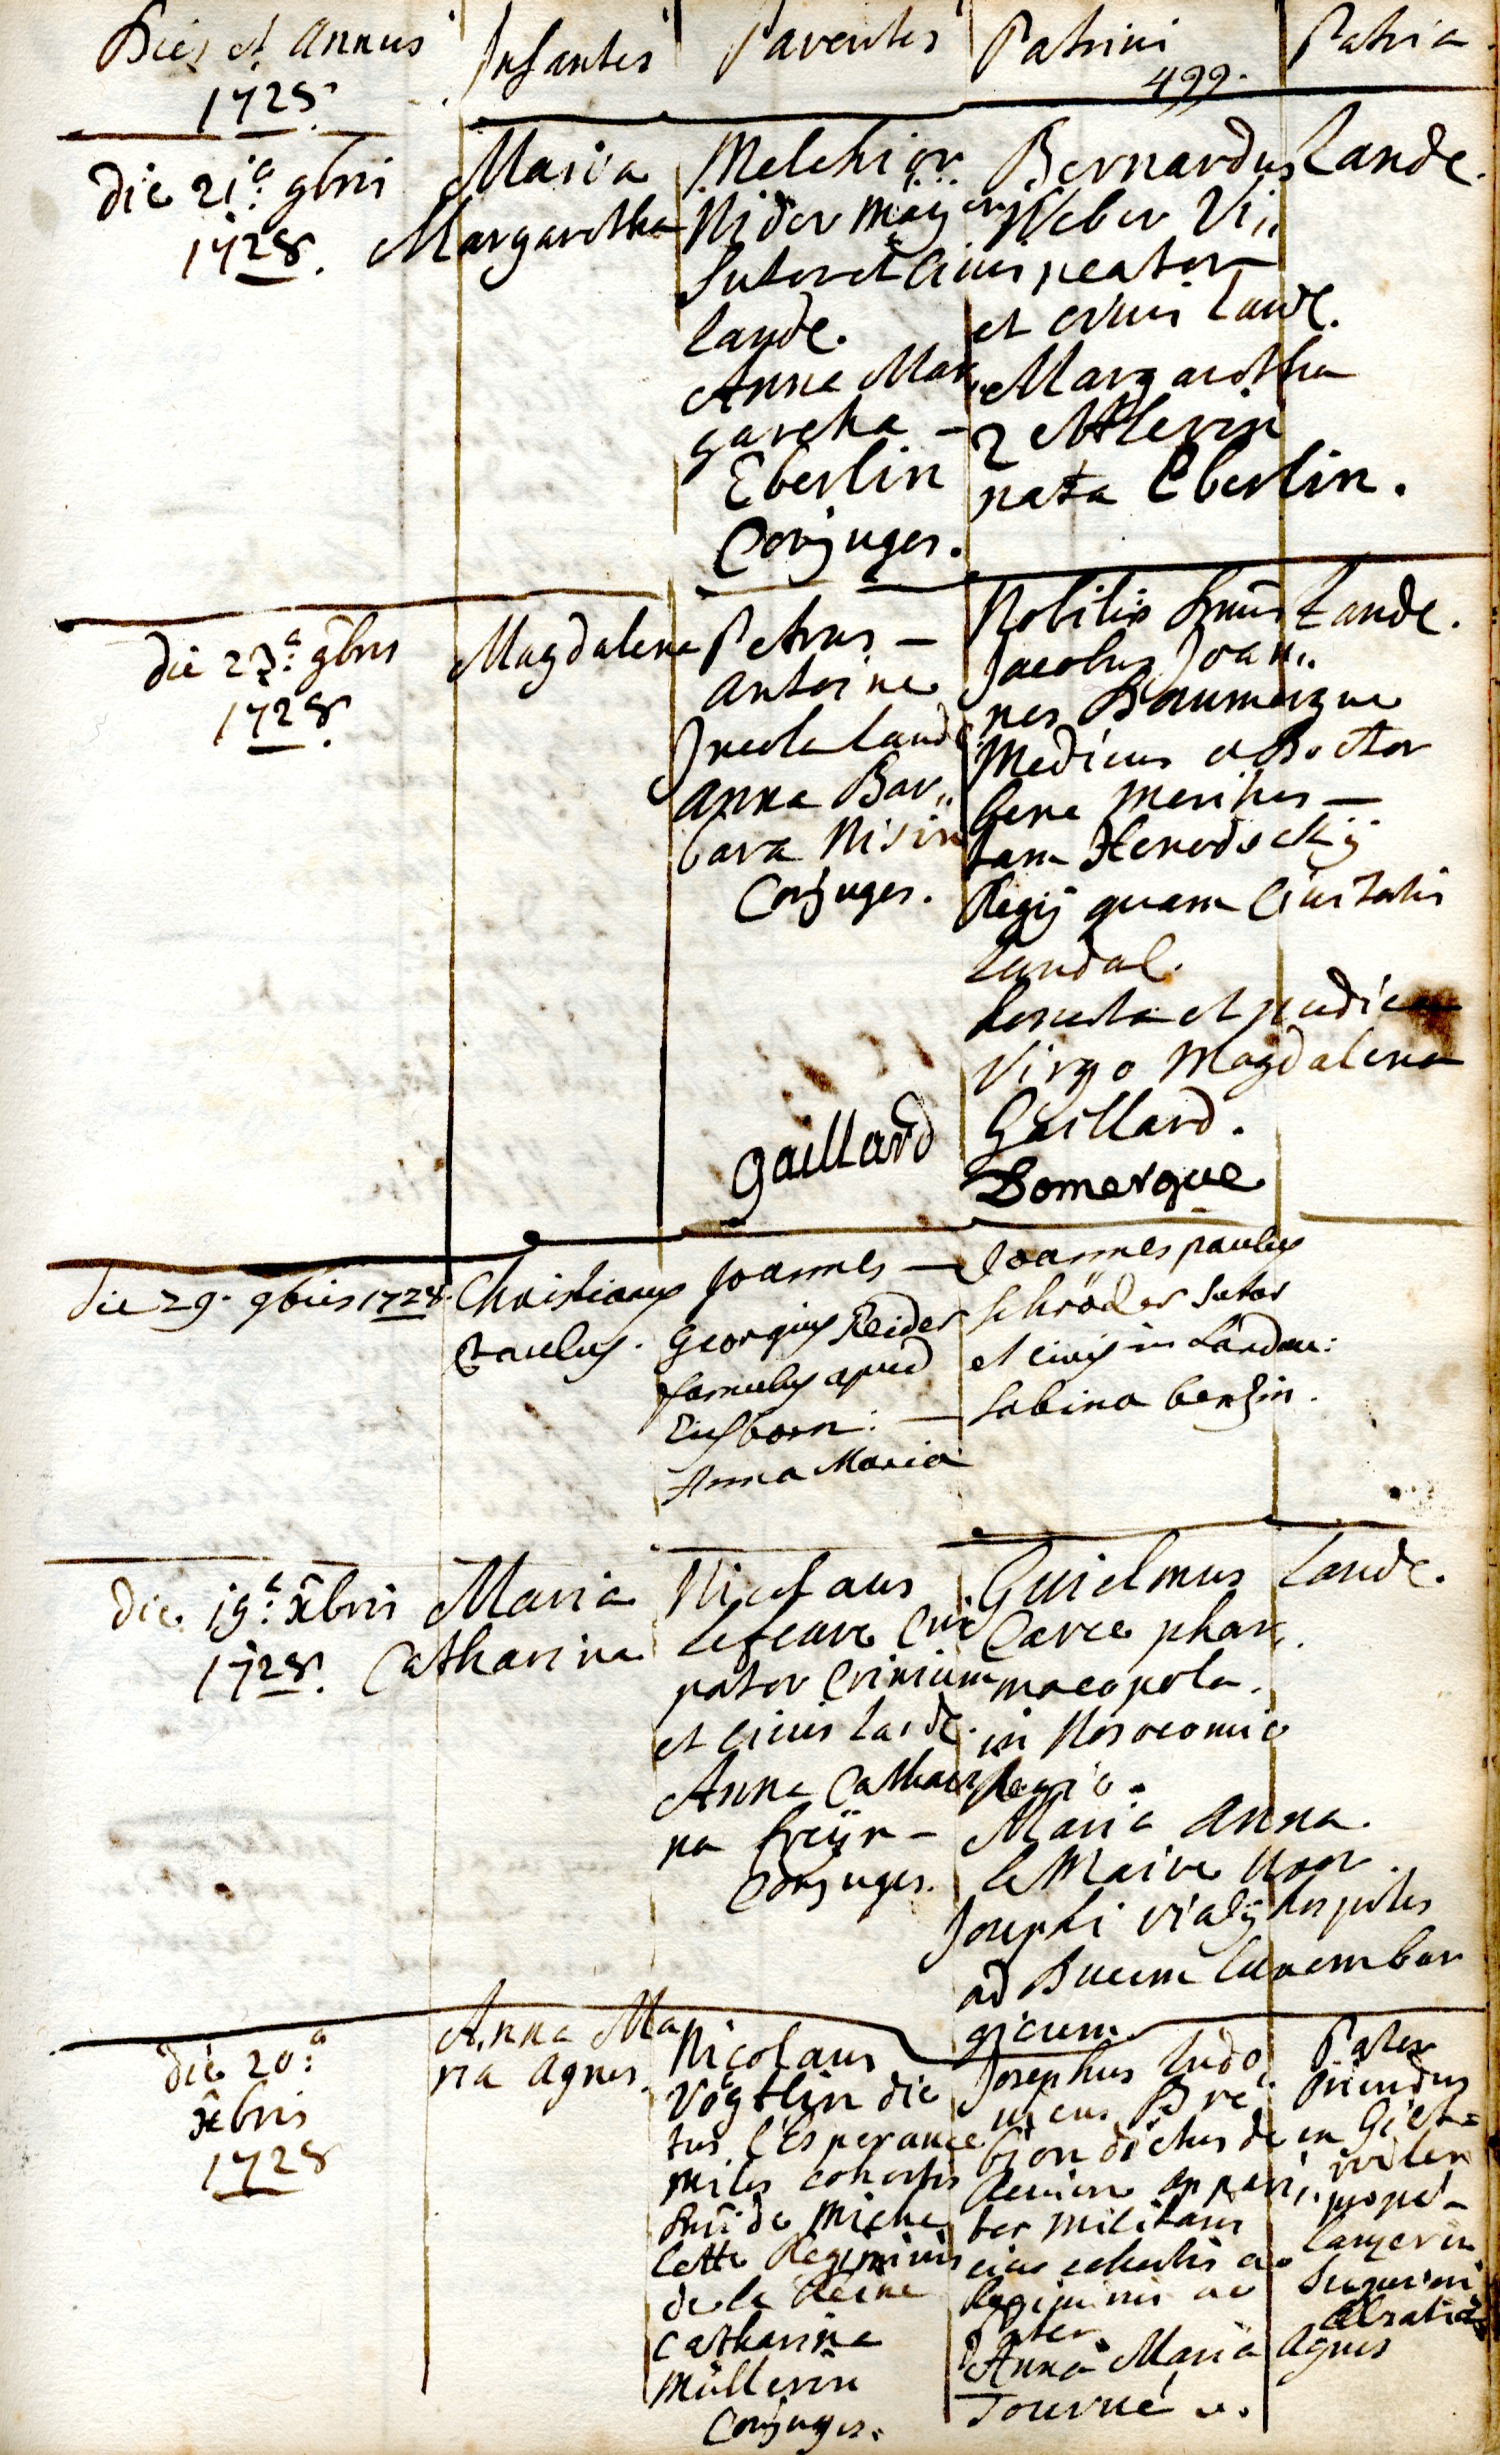 Dies et Annus
1728.
Infantes
Parentes
Patrini
499.
Patria
die 21.a 9bris
1728.
Maria
Margaretha
Melchior
Nider Mayer
Sutor et Civis
Lande.
Anna Mar„
garetha –
Eberlin
Conjuges.
Bernardus
Weber Vi„
neator
et civis Land.
Margaretha
nata Eberlin.
Lande.
die 27.a 9bris
1728.
Magdalena
Petrus –
Antoine
Incola Lande
Anna Bar„
bara
Conjuges.
Gaillard
Nobilis Dnus
Jacobus Joan„
nes Doumergue
Medicus et Doctor
bene meritus –
tam
Regij quam Civitatis
Landal.
honesta et pudica
Virgo Magdalena
Gaillard.
Domergue
Lande.
die 29. 9bris 1728.
Christianus
Paulus.
Joannes –
Georgius Reider
famulus apud
Anna Maria
Joannes paulus
Schröder Sutor
et civis in Landau:
Sabina
die 19.a xbris
1728.
Maria
Catharina
Nicolaus
lefeure
et Civis Lande.
Anna Cathari
na freÿn –
Conjuges.
Guielmus
Caree phar„
macopola
in Nosocomio
Regio.
Maria Anna
le Maire Uxor
Josephi vialÿ hospitis
ad Ducem Luxembur
gicum.
Lande.
die 20.a
xbris
1728
Anna Ma
ria Agnes.
Nicolaus
Vögtlin dic
tus l'Esperance
miles cohortis
Dni de Miche
lette Regiminis
de la Reine
Catharina
Müllerin
Conjuges.
Josephus Ludo
vicus Bre
bion dictus de
militaris
eius cohortis ac
Regiminis ac
Pater.
Anna Maria Agnes
Tourné
Pater
oriundus
prope –
Superiori
Alsatia